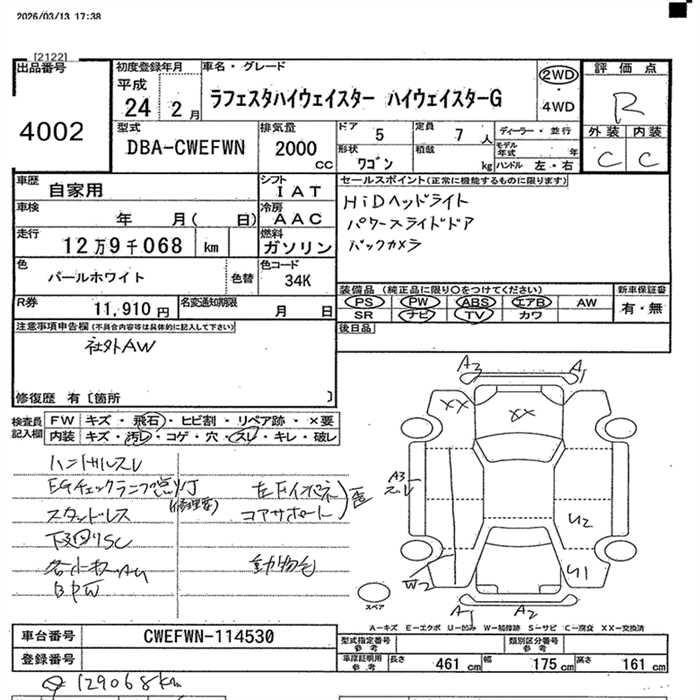 2026/03/13 17:38
[2122]
出品番号
4002
初度登録年月
平成
24 2月
車名・グレード
ラフェスタハイウェイスター ハイウェイスターG
2WD
4WD
評価点
R
外装 内装
C C
型式
DBA-CWEFWN
排気量
2000 cc
ドア 5
定員 7 人
形状 ワゴン
積載 kg
ディーラー・並行
モデル年式 年
ハンドル 左・右
車歴 自家用
シフト IAT
車検 年 月( 日)
冷房 AAC
走行 12万9千068 km
燃料 ガソリン
色 パールホワイト
色替
色コード 34K
R券 11,910 円
名変通知期限 月 日
セールスポイント(正常に機能するものに限ります)
HiDヘッドライト
パワースライドドア
バックカメラ
装備品 (純正品に限り〇をつけてください)
PS PW ABS エアB AW
SR ナビ TV カワ
新車保証書
有・無
後日品
注意事項申告欄(不具合内容等は具体的に記入して下さい)
社外AW
修復歴 有〔箇所 〕
検査員記入欄
FW キズ・飛石・ヒビ割・リペア跡・×要
内装 キズ・汚レ・コゲ・穴・スレ・キレ・破レ
ハンドルスレ
EGチェックランプ点灯
(修理要)
スタッドレス
下廻りSC
BPW
左Fインパネ
コアサポート
動物毛
A3 A1
XX XX
A3
スレ
U2
W2 U1
A1 A2
スペア
A-キズ E-エクボ U-凹み W-補修跡 S-サビ C-腐食 XX-交換済
車台番号 CWEFWN-114530
登録番号
型式指定番号 参考
類別区分番号 参考
車庫証明用 参考
長さ 461 cm 幅 175 cm 高さ 161 cm
129068km